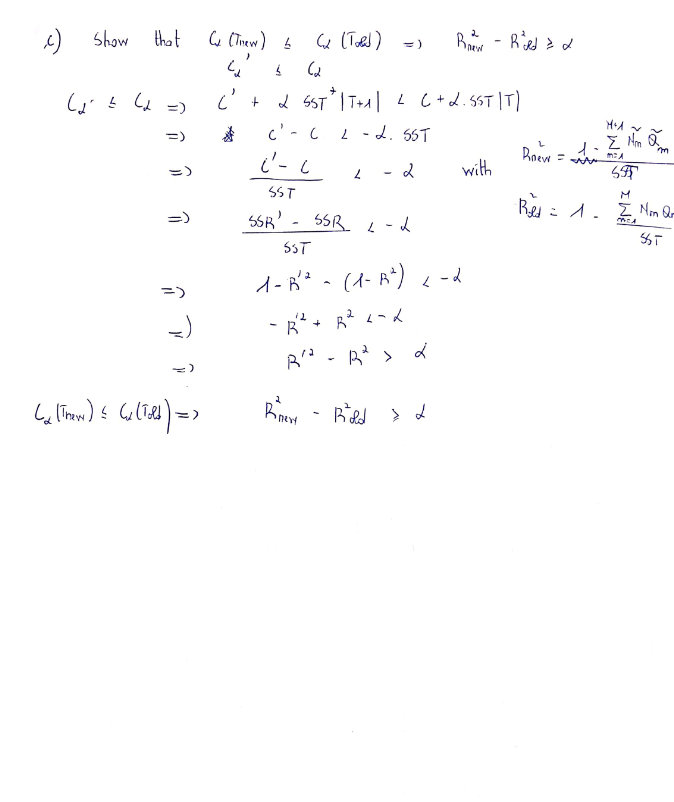 c) Show that Cα(Tnew) ≤ Cα(Told) => R²new - R²old ≥ α
Cα' ≤ Cα
Cα' ≤ Cα => C' + α SST * |T+1| < C + α. SST |T|
=> C' - C < -α. SST
=> (C' - C) / SST < -α with R²new = 1 - (∑_{m=1}^{M+1} Ñm Q̃m) / SST
=> (SSR' - SSR) / SST < -α R²old = 1 - (∑_{m=1}^{M} Nm Qm) / SST
=> 1 - R'² - (1 - R²) < -α
=> - R'² + R² < -α
=> R'² - R² > α
Cα(Tnew) ≤ Cα(Told) => R²new - R²old ≥ α